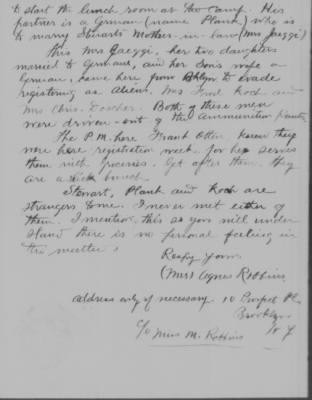 to start the lunch room at the camp. His
partner is a German (name Plank) who is
to marry Stewarts Mother-in-law (Mrs Jaeggi)
This Mrs Jaeggi, her two daughters
married to Germans, and her Sons wife a
German, came here from Bklyn to evade
registering as Aliens. Mrs Fred Koch and
Mrs Chris. Both of these men
were driven out of the Ammunition plants
The P.M. here Frank Otten, knew they
were here registration week for he serves
them with groceries. Get after them. they
are a slick bunch
Stewart, Plank and Koch are
strangers to me. I never met either of
them. I mention this so you will under
stand there is no personal feeling in
the matter.
Respy Yours
(Mrs) Agnes Robbins
address only if necessary 10 Prospect Pl.
Brooklyn
c/o Miss M. Robbins N.Y